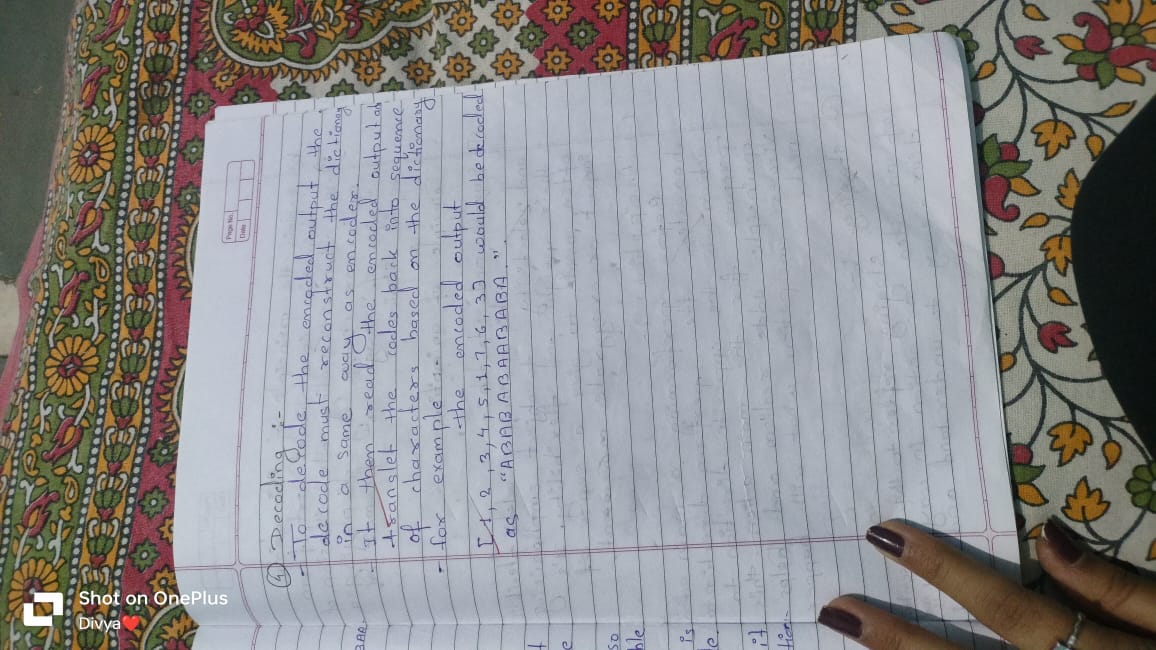 Page No.
Date
④ Decoding :-
- To decode the encoded output, the
decode must reconstruct the dictionary
in a same way as encoder.
- It then read the encoded output as
translet the codes back into sequence
of characters based on the dictionary
- for example :-
the encoded output
[1, 2, 3, 4, 5, 1, 7, 6, 3] would be decoded
as "ABABABABAABABA."
BAA
t
e
so
ble
is
e.
it
tion-
Shot on OnePlus
Divya❤️